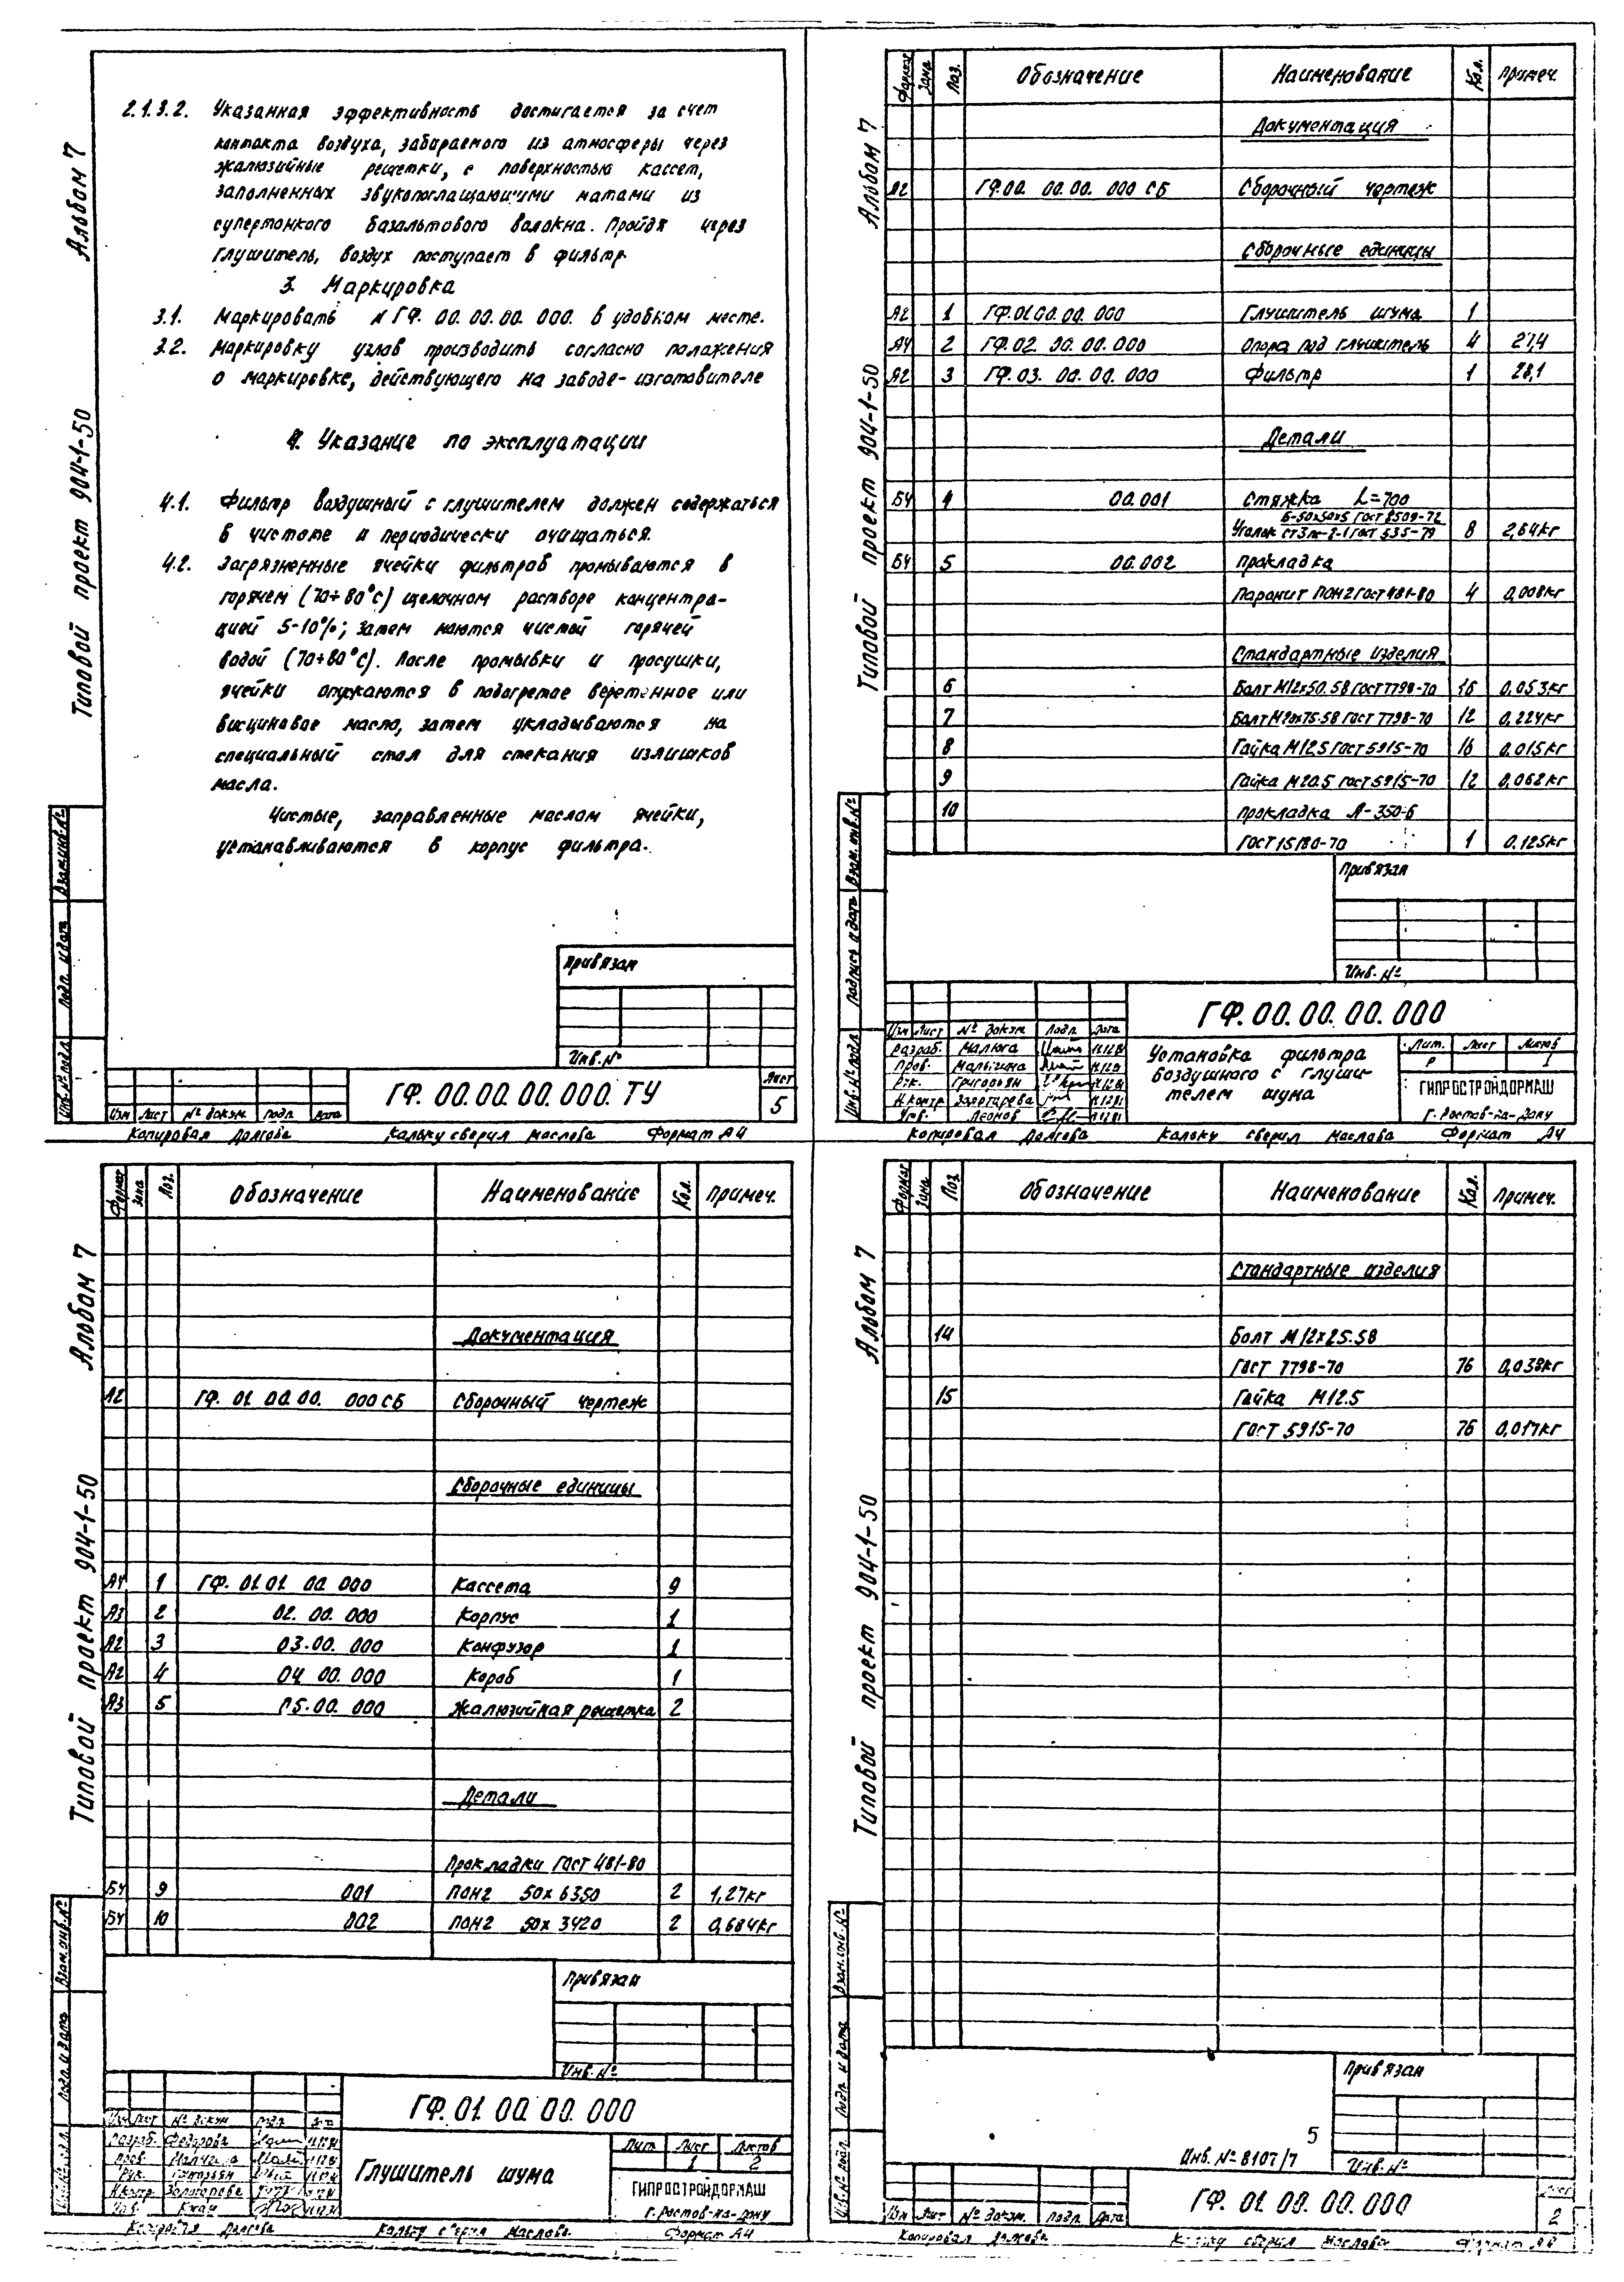 Альбом 7
Типовой проект 904-1-50
2.1.3.2. Указанная эффективность достигается за счет
контакта воздуха, забираемого из атмосферы через
жалюзийные решетки, с поверхностью кассет,
заполненных звукопоглащающими матами из
супертонкого базальтового волокна. Пройдя через
глушитель, воздух поступает в фильтр.
3. Маркировка
3.1. Маркировать № ГФ. 00.00.00.000. в удобном месте.
3.2. Маркировку узлов производить согласно положения
о маркировке, действующего на заводе-изготовителе
4. Указание по эксплуатации
4.1. Фильтр воздушный с глушителем должен содержаться
в чистоте и периодически очищаться.
4.2. Загрязненные ячейки фильтров промываются в
горячем (70÷80°С) щелочном растворе концентра-
цией 5-10%; затем моются чистой горячей
водой (70÷80°С). После промывки и просушки,
ячейки опускаются в подогретое веретенное или
висциновое масло, затем укладываются на
специальный стол для стекания излишков
масла.
Чистые, заправленные маслом ячейки,
устанавливаются в корпус фильтра.
Привязан
Инв. №
Инв. № подл. Подп. и дата Взам.инв.№
ГФ. 00.00.00.000. ТУ
Лист
5
Изм Лист № докум. Подп. Дата
Копировал Долгова Кальку сверил Маслова Формат А4
Альбом 7
Типовой проект 904-1-50
Формат Зона Поз. Обозначение Наименование Кол. Примеч.
Документация
А2 ГФ.00. 00.00. 000 СБ Сборочный чертеж
Сборочные единицы
А2 1 ГФ.01.00.00.000 Глушитель шума 1
А4 2 ГФ.02. 00.00.000 Опора под глушитель 4 27,4
А2 3 ГФ.03. 00.00. 000 Фильтр 1 28,1
Детали
БЧ 4 00.001 Стяжка L=700
Уголок Б-50х50х5 ГОСТ 8509-72
Ст3пс-2-1 ГОСТ 535-79 8 2,64кг
БЧ 5 00.002 Прокладка
Паронит ПОН2 ГОСТ 481-80 4 0,008кг
Стандартные изделия
6 Болт М12х50.58 ГОСТ 7798-70 16 0.053кг
7 Болт М20х75.58 ГОСТ 7798-70 12 0,224кг
8 Гайка М12.5 ГОСТ 5915-70 16 0.015кг
9 Гайка М20.5 ГОСТ 5915-70 12 0,062кг
10 Прокладка А-350-6
ГОСТ 15180-70 1 0.125кг
Привязан
Инв. №
Инв. № подл. Подпись и дата Взам. инв. №
ГФ.00.00.00.000
Изм Лист № докум. Подп. Дата
Разраб. Малюга 11.12.81
Пров. Малыгина 11.12.81
Рук. Григорьян 11.12.81
Н.контр. Золотарева 11.12.81
Утв. Леонов 11.12.81
Установка фильтра
воздушного с глуши-
телем шума
Лит. Лист Листов
Р 1
ГИПРОСТРОЙДОРМАШ
г. Ростов-на-Дону
Копировал Долгова Кальку сверил Маслова Формат А4
Альбом 7
Типовой проект 904-1-50
Формат Зона Поз. Обозначение Наименование Кол. Примеч.
Документация
А2 ГФ. 01. 00.00. 000 СБ Сборочный чертеж
Сборочные единицы
А4 1 ГФ. 01.01. 00. 000 Кассета 9
А3 2 02. 00. 000 Корпус 1
А2 3 03.00. 000 Конфузор 1
А2 4 04. 00. 000 Короб 1
А3 5 05.00. 000 Жалюзийная решетка 2
Детали
Прокладки ГОСТ 481-80
БЧ 9 001 ПОН2 50х6350 2 1,27кг
БЧ 10 002 ПОН2 50х3420 2 0,684кг
Привязан
Инв. №
Подп. и дата Взам.инв.№
ГФ. 01. 00. 00. 000
Изм Лист № докум Подп. Дата
Разраб. Федорова
Пров.
Рук. Григорьян
Н.контр. Золотарева
Утв.
Глушитель шума
Лит Лист Листов
1 2
ГИПРОСТРОЙДОРМАШ
г. Ростов-на-Дону
Копировал Долгова Кальку сверил Маслова Формат А4
Альбом 7
Типовой проект 904-1-50
Формат Зона Поз. Обозначение Наименование Кол. Примеч.
Стандартные изделия
14 Болт М12х25.58
ГОСТ 7798-70 76 0,038кг
15 Гайка М12.5
ГОСТ 5915-70 76 0,017кг
Привязан
Инв. №
5
Инв. № 8107/7
Инв. № подл. Подп. и дата Взам. инв. №
ГФ. 01. 00. 00.000
Лист
2
Изм Лист № докум. Подп. Дата
Копировал Долгова Кальку сверил Маслова Формат А4